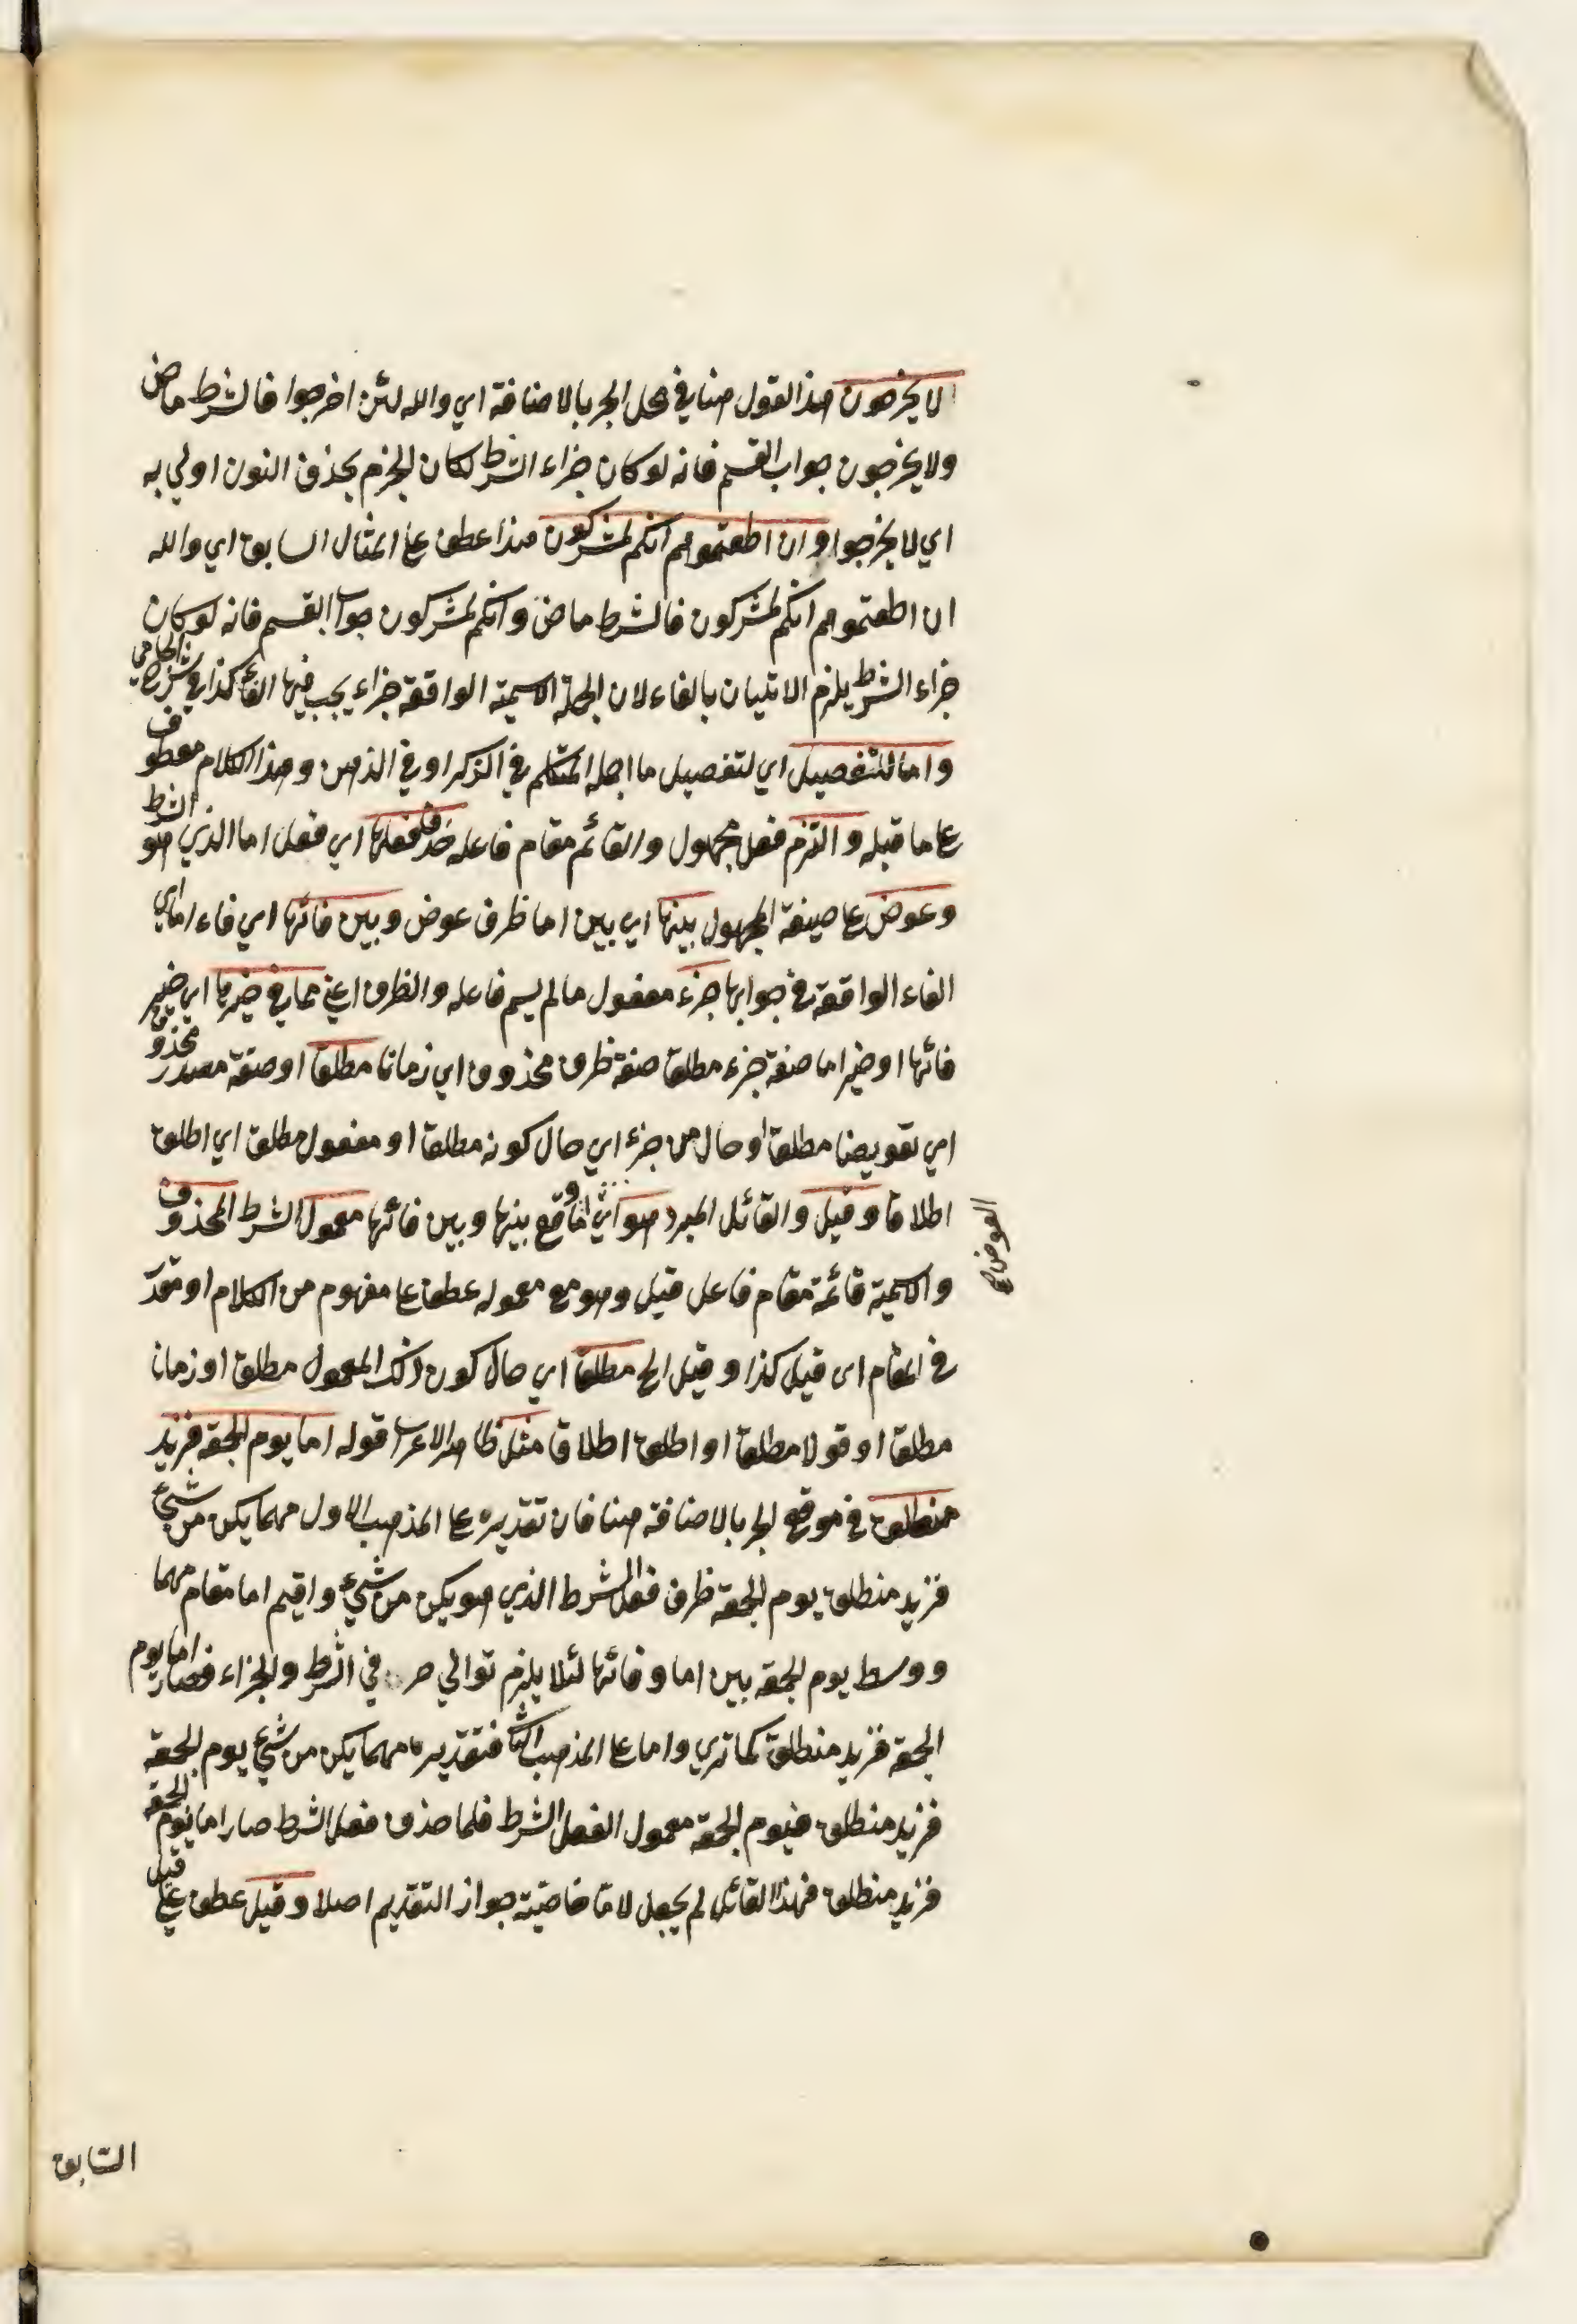 لا يخرجون هذا القول هنا في محل الجر بالاضافة اي والله لئن اخرجوا فالشرط ماض
ولا يخرجون جواب القسم فانه لو كان جزاء الشرط لكان الجزم بحذف النون اولي به
اي لا يخرجوا وان اطعتموهم انكم لمشركون هذا عطف على المثال السابق اي والله
ان اطعتموهم انكم لمشركون فالشرط ماض وانكم لمشركون جواب القسم فانه لو كان
جزاء الشرط يلزم الاتيان بالفاء لان الجملة الاسمية الواقعة جزاء يجب فيها الفاء كذا في شرح الجامي
واما للتفصيل اي لتفصيل ما اجمله المتكلم في الذكر او في الذهن وهذا الكلام معطوف
على ما قبله والتزم فعل مجهول والقائم مقام فاعله حذف فعلها اي فعل اما الذي هو الشرط
وعوض على صيغة المجهول بينها اي بين اما ظرف عوض وبين فائها اي فاء اما اي
الفاء الواقعة في جوابها جزء مفعول ما لم يسم فاعله والظرف اعني مما في حيزها اي حيز
فائها او حيز اما صفة جزء مطلقا صفة ظرف محذوف اي زمانا مطلقا او صفة مصدر محذوف
اي تعويضا مطلقا او حال من جزء اي حال كونه مطلقا او مفعول مطلق اي اطلق
اطلاقا وقيل والقائل المبرد هو اي الواقع بينها وبين فائها معمول الشرط المحذوف
العوض صح
والاسمية قائمة مقام فاعل قيل وهو مع معموله عطف على مفهوم من الكلام او مقدر
في المقام اى قيل كذا وقيل الخ مطلقا اي حال كون ذلك المعمول مطلق او زمانا
مطلقا او قولا مطلقا او اطلق اطلاقا مثل ظاهر الاعراب قوله اما يوم الجمعة فزيد
منطلق في موقع الجر بالاضافة هنا فان تقديره على المذهب الاول مهما يكن من شيء
فزيد منطلق يوم الجمعة ظرف فعل الشرط الذي هو يكن من شيء واقيم اما مقام مهما
ووسط يوم الجمعة بين اما وفائها لئلا يلزم توالي حرفي الشرط والجزاء فصار اما يوم
الجمعة فزيد منطلق كما تري واما على المذهب الثاني فتقديره مهما يكن من شيء يوم الجمعة
فزيد منطلق فيوم الجمعة معمول الفعل الشرط فلما حذف فعل الشرط صار اما يوم الجمعة
فزيد منطلق فهذا القائل لم يجعل لامّا خاصّيّة جواز التقديم اصلا وقيل عطف على قيل
السّابق